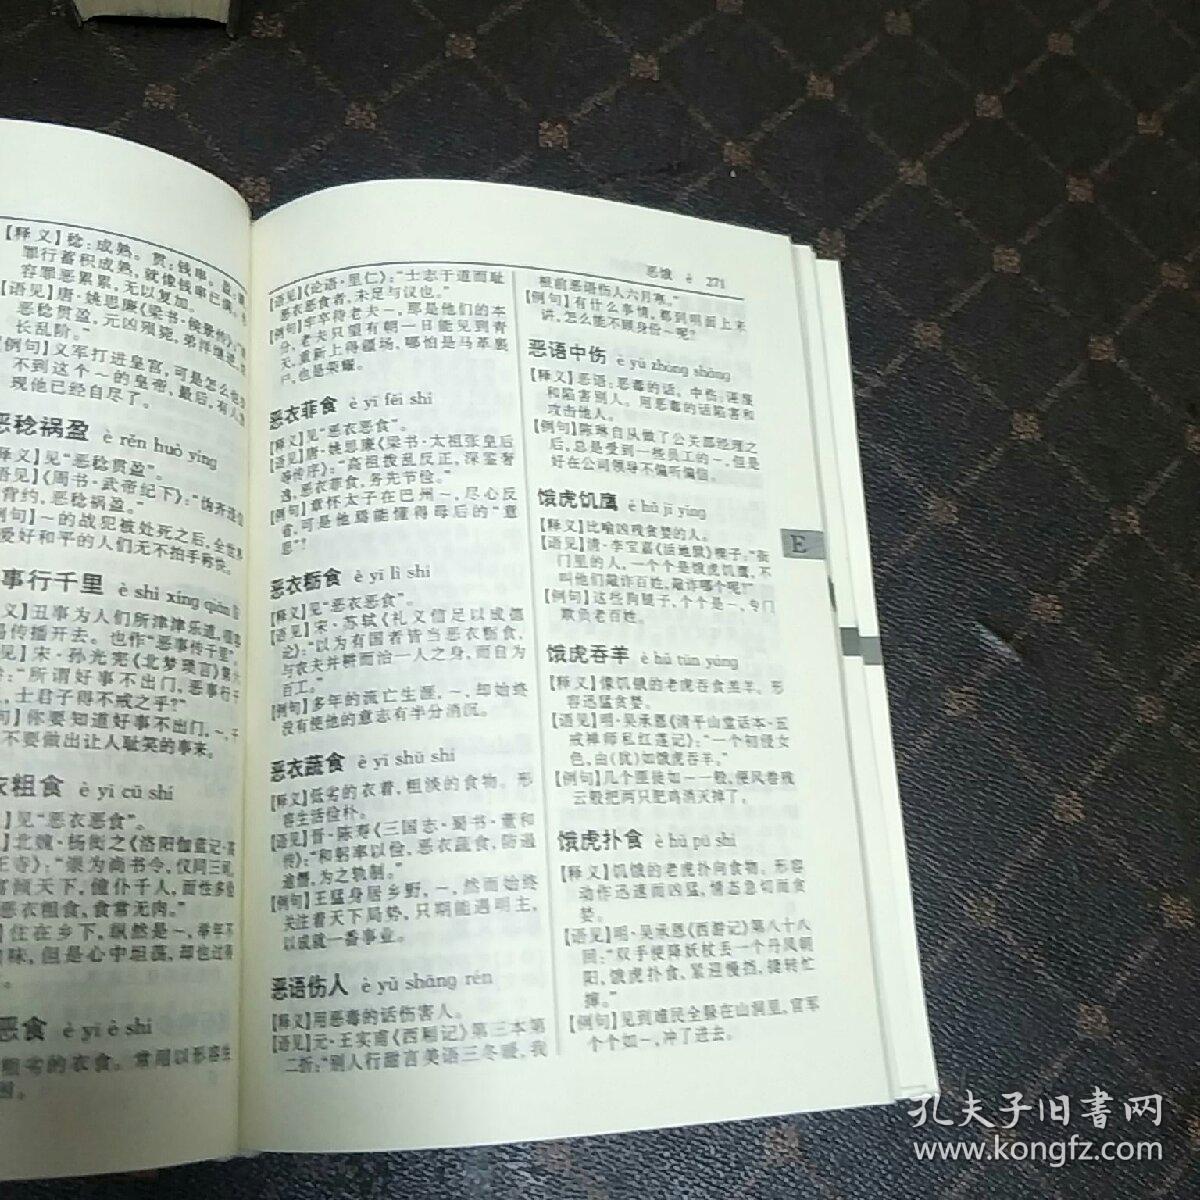 【释义】稔：成熟。贯：钱串。
罪行蓄积成熟，就像钱串已满。
容罪恶累累，无以复加。
长乱阶。”
例句】义军打进皇宫，可是怎么也
不到这个～的皇帝，最后，有人
现他已经自尽了。
恶稔祸盈 è rěn huò yíng
释义】见“恶稔贯盈”。
语见】《周书·武帝纪下》：“伪齐违信
背约，恶稔祸盈。”
例句】～的战犯被处死之后，全世界
爱好和平的人们无不拍手称快。
事行千里 è shì xíng qiān
义】丑事为人们所津津乐道，很容
易传播开去。也作“恶事传千里”。
见】宋·孙光宪《北梦琐言》第六
：“所谓好事不出门，恶事行千
，士君子得不戒之乎？”
句】你要知道好事不出门，～，千
不要做出让人耻笑的事来。
衣粗食 è yī cū shí
】见“恶衣恶食”。
】北魏·杨衒之《洛阳伽蓝记·高
王寺》：“崇为尚书令，仪同三司，
富倾天下，僮仆千人，而性多俭
恶衣粗食，食常无肉。”
】住在乡下，纵然是～，
味，但是心中坦荡，却也过得
恶食 è yī è shí
粗劣的衣食。常用以形容生
恶饿 è 271
【语见】《论语·里仁》：“士志于道而耻
恶衣恶食者，未足与议也。”
【例句】牢卒待老夫～，那是他们的本
分，老夫只望有朝一日能见到青
天，重新上得疆场，哪怕是马革裹
尸，也是荣耀。
恶衣菲食 è yī fěi shí
【释义】见“恶衣恶食”。
【语见】唐·姚思廉《梁书·太祖张皇后
等传序》：“高祖拨乱反正，深鉴奢
逸，恶衣菲食，务先节俭。”
【例句】章怀太子在巴州～，尽心反
省，可是他焉能懂得母后的“意
思”！
恶衣粝食 è yī lì shí
【释义】见“恶衣恶食”。
【语见】宋·苏轼《礼义信足以成德
论》：“以为有国者皆当恶衣粝食，
与农夫并耕而治一人之身，而自为
百工。”
【例句】多年的流亡生涯，～，却始终
没有使他的意志有半分消沉。
恶衣蔬食 è yī shū shí
【释义】低劣的衣着，粗淡的食物。形
容生活俭朴。
【语见】晋·陈寿《三国志·蜀书·董和
传》：“和躬率以俭，恶衣蔬食，防遏
逾僭，为之轨制。”
【例句】王猛身居乡野，～，然而始终
关注着天下局势，只期能遇明主，
以成就一番事业。
恶语伤人 è yǔ shāng rén
【释义】用恶毒的话伤害人。
【语见】元·王实甫《西厢记》第三本第
二折：“别人行甜言美语三冬暖，我
根前恶语伤人六月寒。”
【例句】有什么事情，都到明面上来
讲，怎么能不顾身份～呢？
恶语中伤 è yǔ zhòng shāng
【释义】恶语：恶毒的话。中伤：诬蔑
和陷害别人。用恶毒的话陷害和
攻击他人。
【例句】陈琳自从做了公关部经理之
后，总是受到一些员工的～，但是
好在公司领导不偏听偏信。
饿虎饥鹰 è hǔ jī yīng
【释义】比喻凶残贪婪的人。
【语见】清·李宝嘉《活地狱》楔子：“衙
门里的人，一个个是饿虎饥鹰，不
叫他们敲诈百姓，敲诈哪个呢？”
【例句】这些狗腿子，个个是～，专门
欺负老百姓。
饿虎吞羊 è hǔ tūn yáng
【释义】像饥饿的老虎吞食羔羊。形
容迅猛贪婪。
【语见】明·吴承恩《清平山堂话本·五
戒禅师私红莲记》：“一个初侵女
色，由（犹）如饿虎吞羊。”
【例句】几个匪徒如～一般，便风卷残
云般把两只肥鸡消灭掉了。
饿虎扑食 è hǔ pū shí
【释义】饥饿的老虎扑向食物。形容
动作迅速而凶猛，情态急切而贪
婪。
【语见】明·吴承恩《西游记》第八十八
回：“双手使降妖杖丢一个丹凤朝
阳，饿虎扑食，紧迎慢挡，捷转忙
撺。”
【例句】见到难民全躲在山洞里，官军
个个如～，冲了进去。
E
孔夫子旧书网
www.kongfz.com